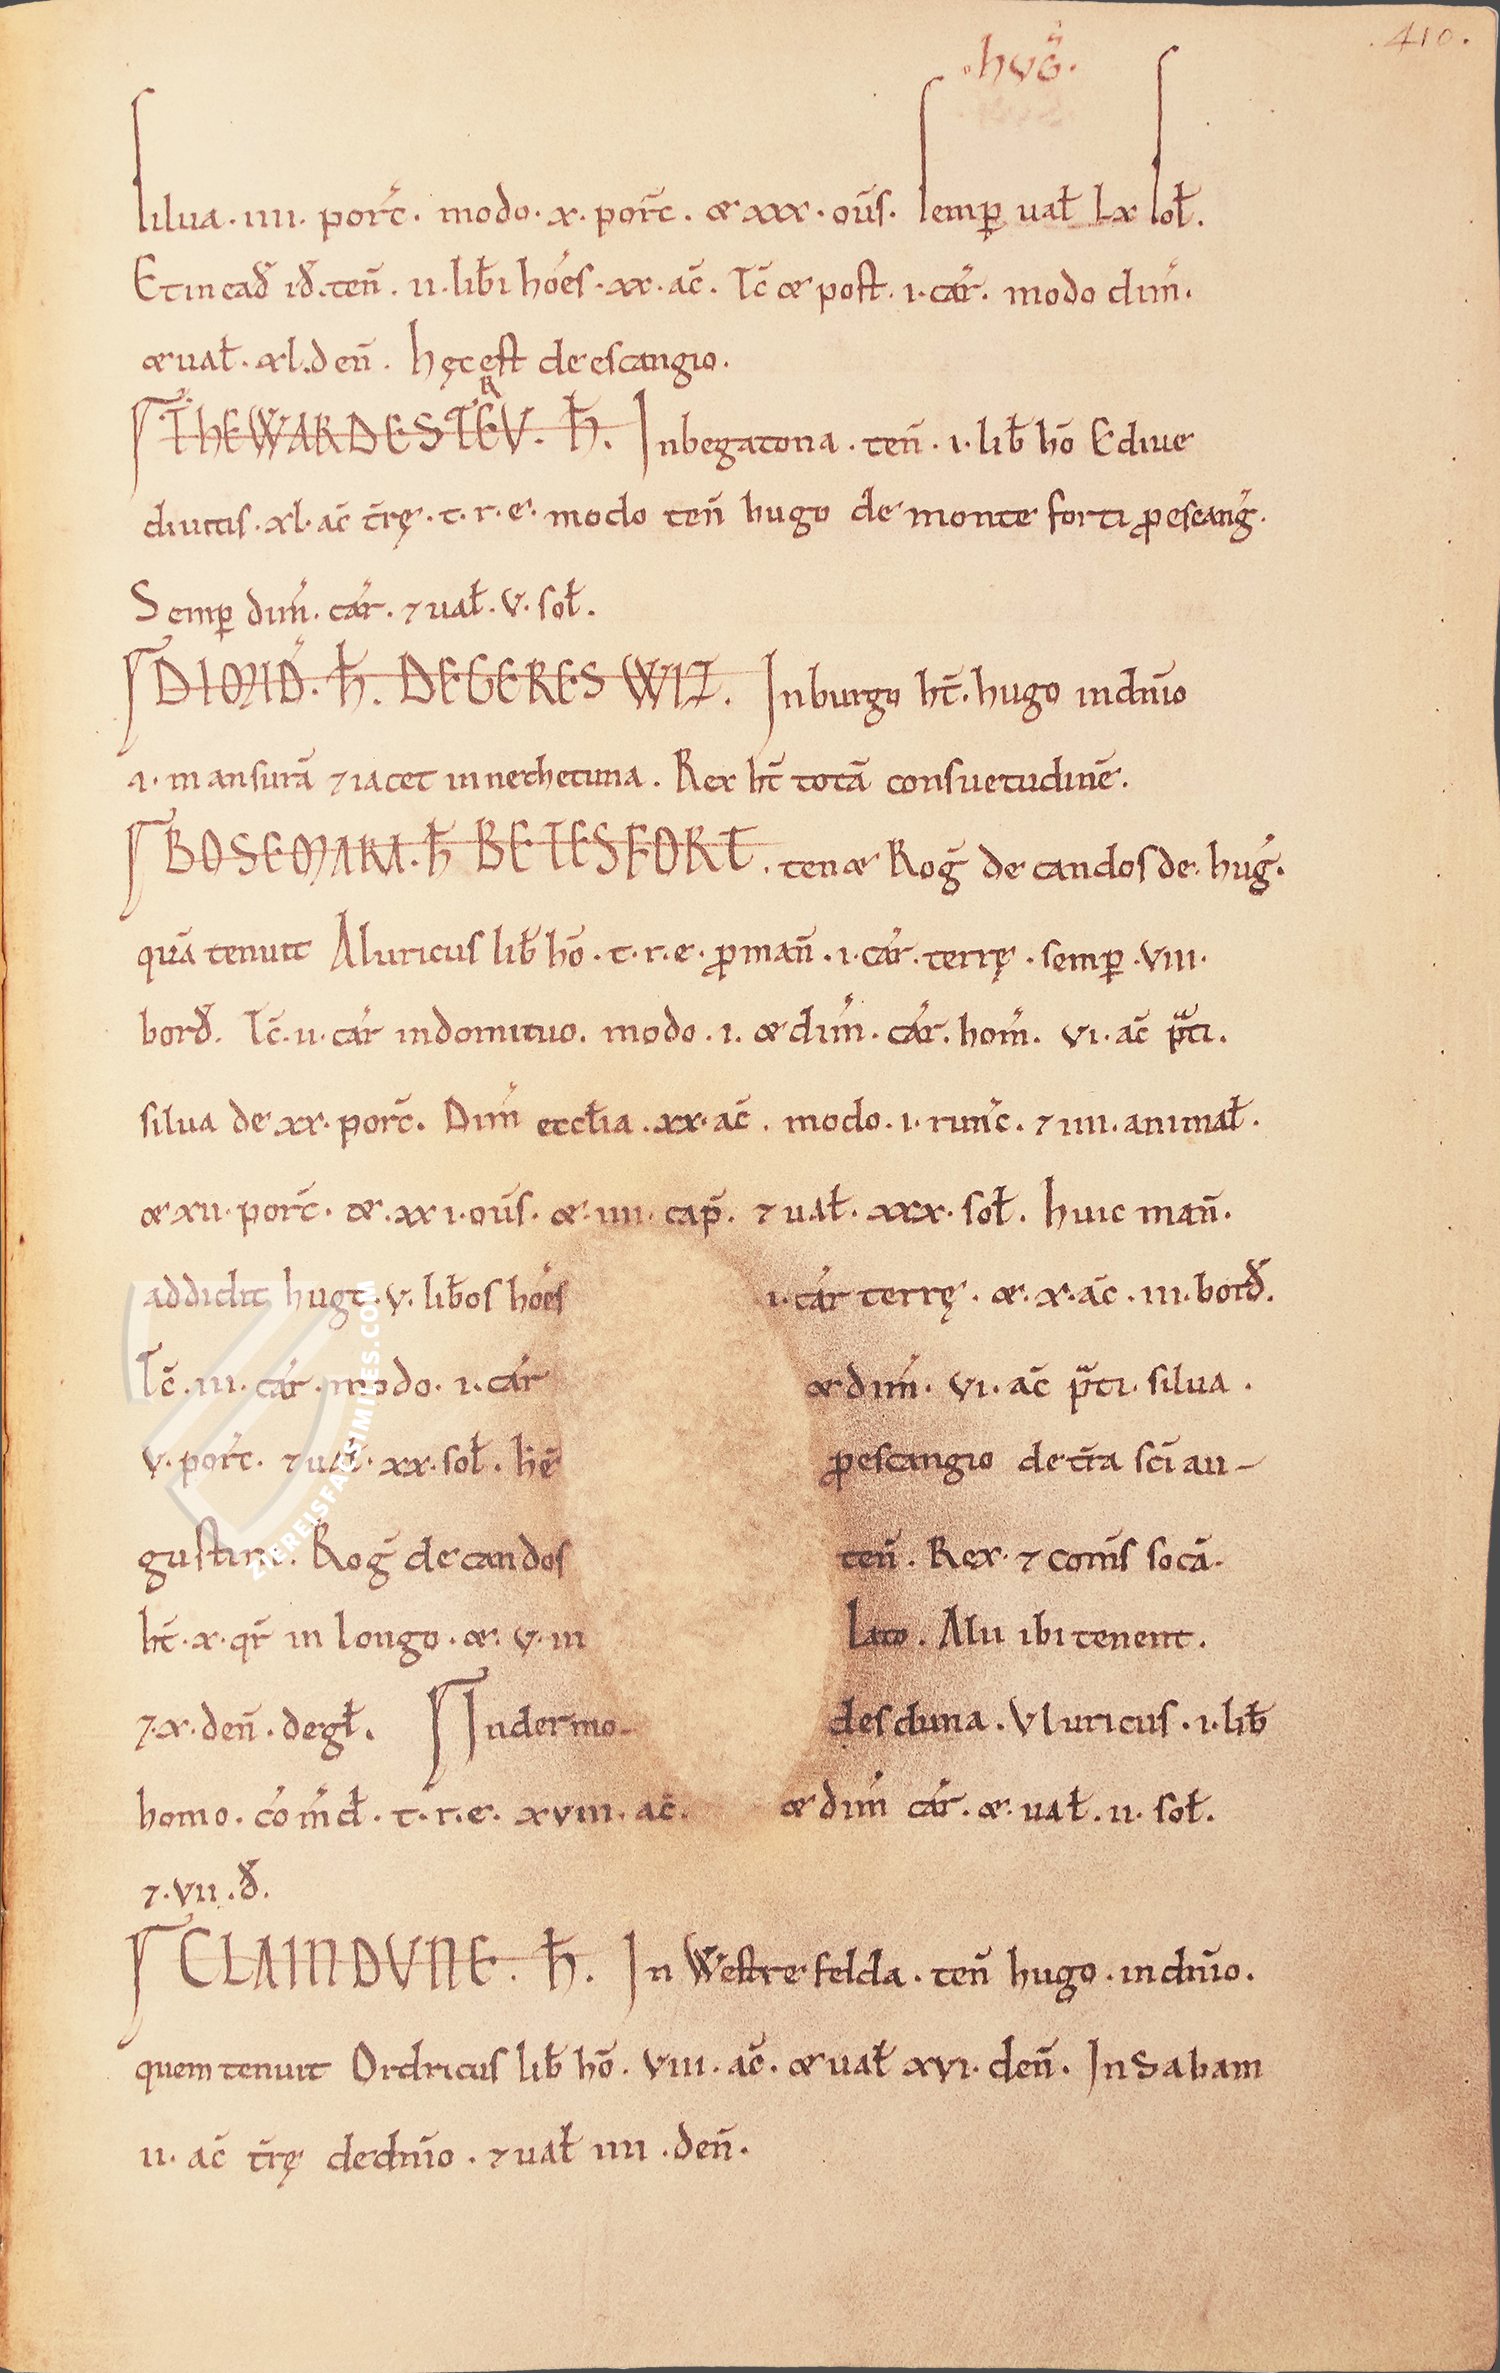 .410.
.hvḡ.
Silua . IIII . porc̄ . modo . x . porc̄ . æ xxx . ou̅s . Semp̱ ual̵ Lx Sol̵ .
Et in ead̄ id̄ . ten̄ . II . lib̄i hōes . xx . ac̄ . Tc̄ æ post . I . car̄ . modo dim̄ .
æ ual̵ . xl . den̄ . hęc est de escangio .
THEWARDESTEV . H̄ . R In begatona . ten̄ . I . lib̄ hō Ediue
diuitis . xl . ac̄ t̄rę . t . r . e . modo ten̄ hugo de monte forti ꝓ escanḡ .
Semp̱ dim̄ . car̄ . ⁊ ual̵ . V . sol̵ .
DIMID̄ . H̄ . DE GERESWIZ . In burgo ht̄ . hugo in dn̄io
I . mansurā ⁊ iacet in nechetuna . Rex ht̄ totā consuetudinē .
BOSEMARA . H̄ BETESFORT . tenæ Roḡ de candos de . huḡ .
quā tenuit Aluricus lib̄ hō . t . r . e . ꝓ man̄ . I . car̄ . terrę . semp̱ . VIII .
bord̄ . Tc̄ . II . car̄ in domituo . modo . I . æ dim̄ . car̄ . hom̄ . VI . ac̄ p̄ti .
silua de xx . porc̄ . Dim̄ eccl̵ia . xx . ac̄ . modo . I . runc̄ . ⁊ IIII . animal̵ .
æ xII . porc̄ . æ . xxI . ou̅s . æ . IIII . cap̄ . ⁊ ual̵ . xxx . sol̵ . huic man̄ .
addidit hugo . V . lib̄os hōes I . car̄ terrę . æ . x . ac̄ . III . bord̄ .
Tc̄ . III . car̄ . modo . I . car̄ æ dim̄ . VI . ac̄ p̄ti . silua .
V . porc̄ . ⁊ ual̵ . xx . sol̵ . h̄ē ꝓ escangio de t̄ra sc̄i au-
gustini . Roḡ de candos ten̄ . Rex . ⁊ com̄s socā .
ht̄ . x . qr̄ in longo . æ . V . in lato . Alii ibi tenent .
⁊ . x . den̄ . de gl̵ . In dermo- desduna . Vluricus . I . lib̄
homo . cōm̄d̵ . t . r . e . xVIII . ac̄ . æ dim̄ car̄ . æ . ual̵ . II . sol̵ .
⁊ . VII . d̄ .
CLAINDUNE . H̄ . In Westrefelda . ten̄ hugo . in dn̄io .
quem tenuit Ordricus lib̄ hō . VIII . ac̄ . æ ual̵ xVI . den̄ . In Sabam
II . ac̄ t̄rę de dn̄io . ⁊ ual̵ IIII . den̄ .
ZIEREISFACSIMILES.COM